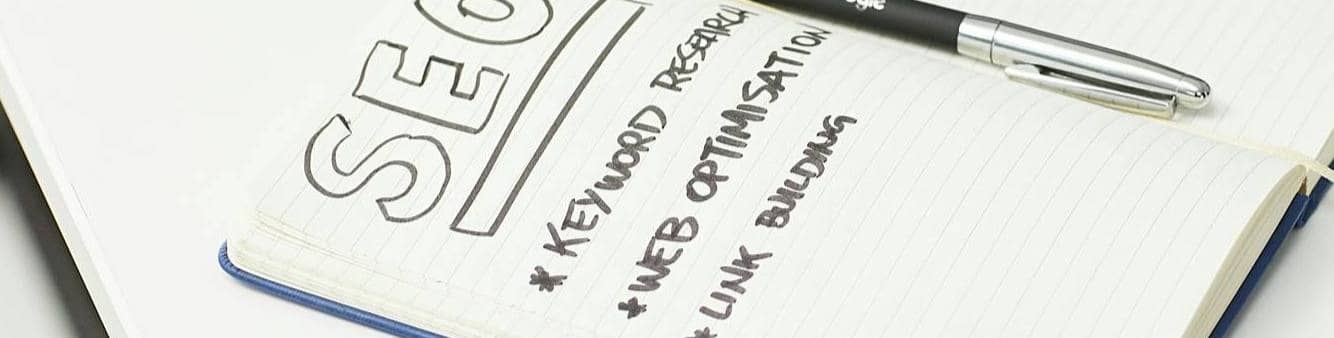 SEO
* KEYWORD RESEARCH
* WEB OPTIMISATION
* LINK BUILDING